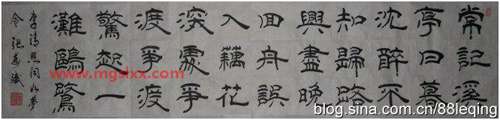 常記溪
亭日暮
沈醉不
知歸路
興盡晚
回舟誤
入藕花
深處爭
渡爭渡
驚起一
灘鷗鷺
李清照詞如夢
令
www.mgslxx.com
blog.sina.com.cn/88leqing